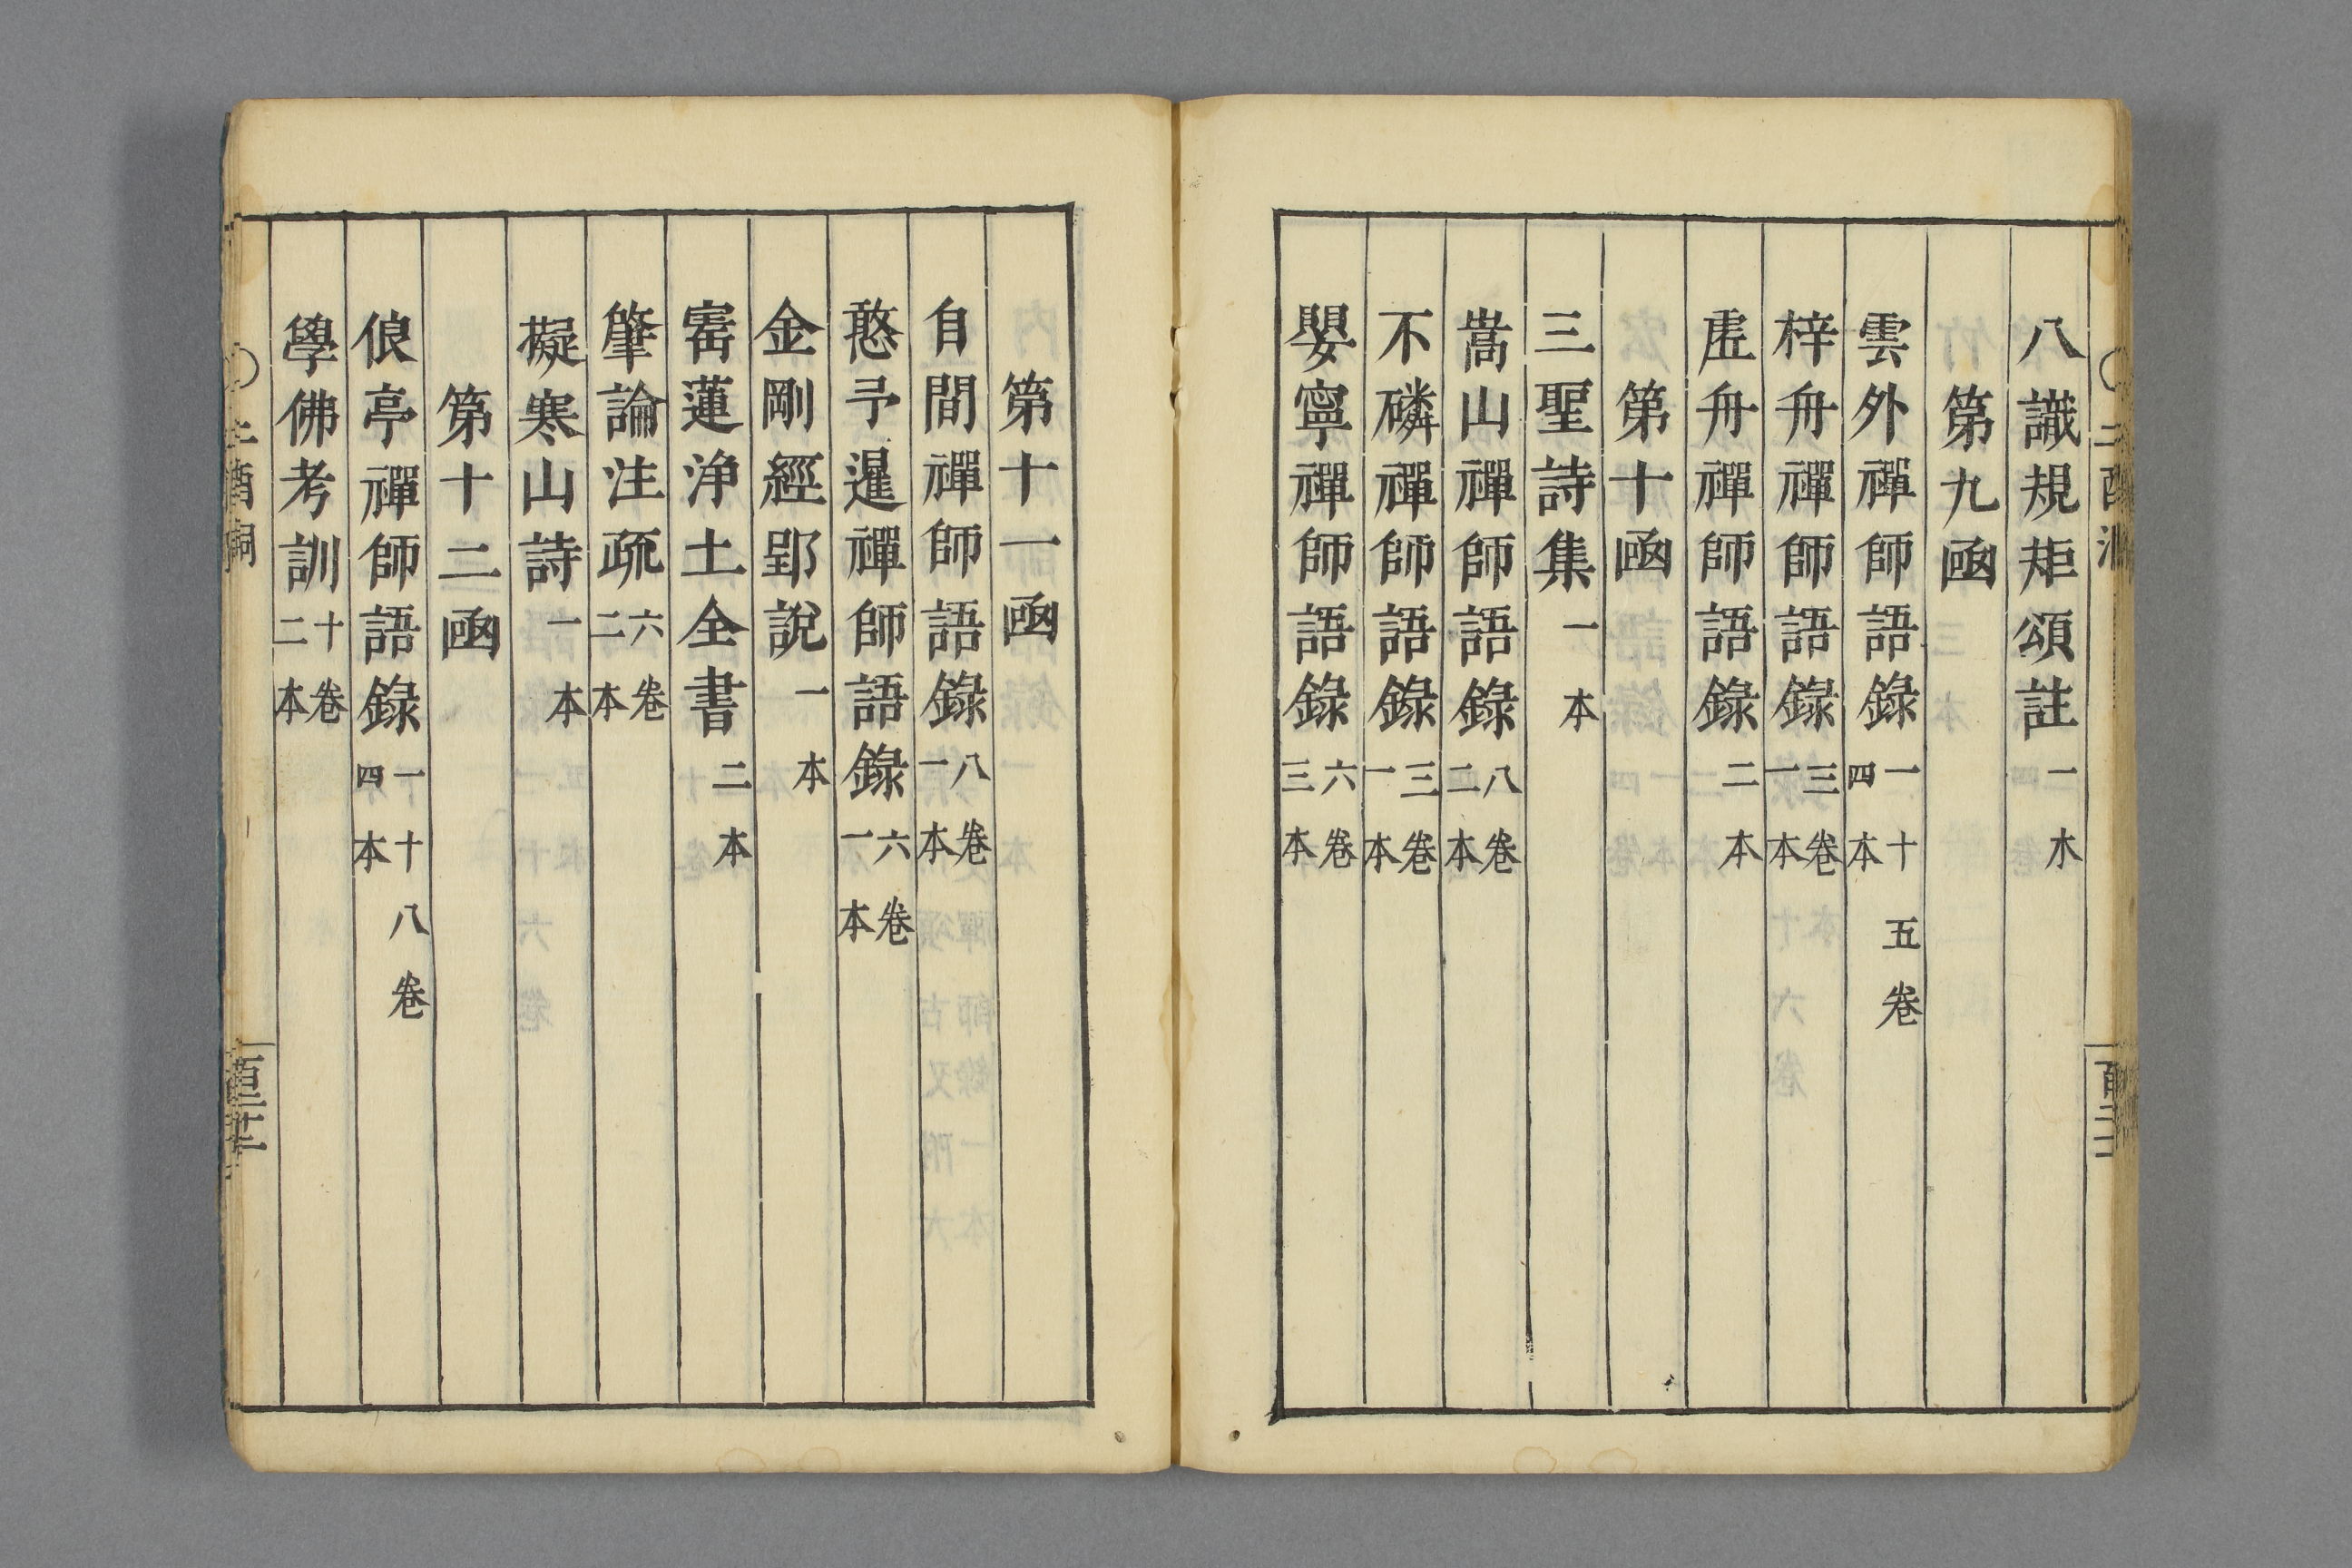 八識規矩頌註一本
第九凾
雲外禪師語錄一十五卷四本
梓舟禪師語錄三卷一本
虗舟禪師語錄二本
第十凾
三聖詩集一本
嵩山禪師語錄八卷二本
不磷禪師語錄三卷一本
嬰寧禪師語錄六卷三本
第十一凾
自閒禪師語錄八卷一本
憨予暹禪師語錄六卷一本
金剛經郢說一本
蓮淨土全書二本
肇論注疏六卷二本
擬寒山詩一本
第十二凾
俍亭禪師語錄一十八卷四本
學佛考訓十卷二本